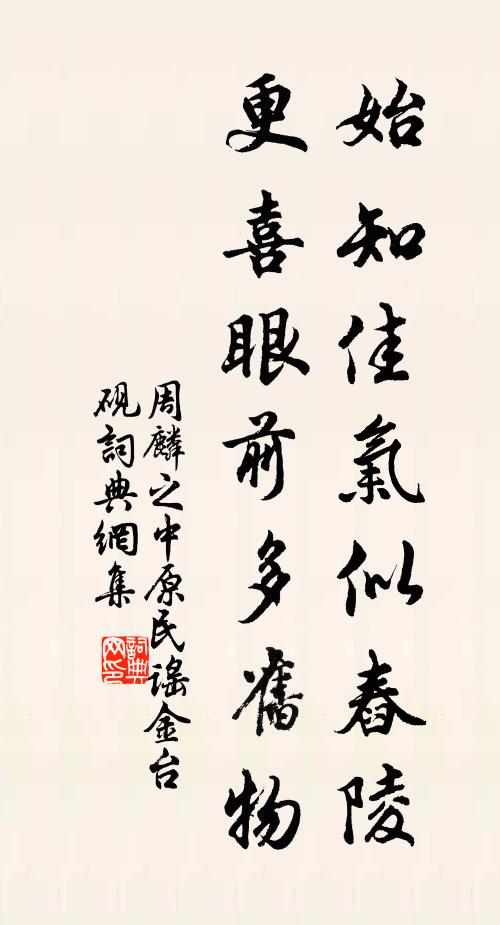 始知佳氣似舂陵
更喜眼前多舊物
周麟之中原民謠金台
硯詞典網集
詞典
网印